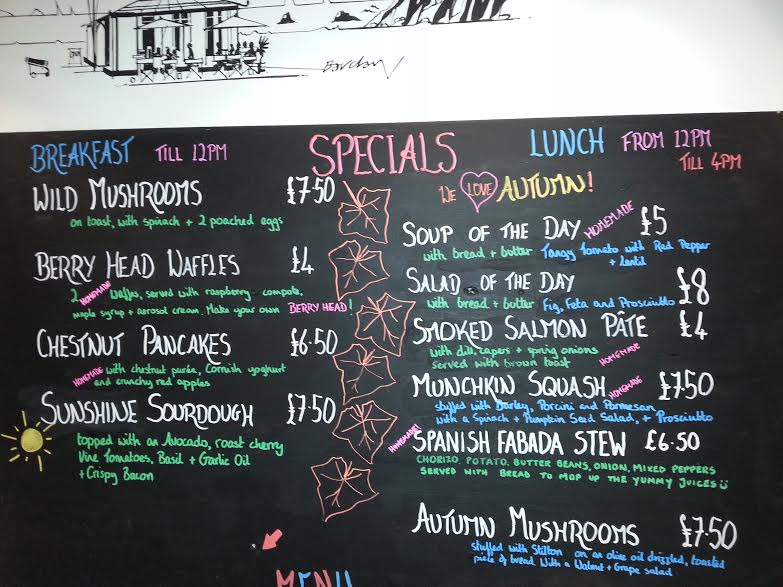 Barclay
BREAKFAST TILL 12PM
SPECIALS
LUNCH FROM 12PM
TILL 4PM
WILD MUSHROOMS £7.50
on toast, with spinach + 2 poached eggs
BERRY HEAD WAFFLES £4
2 HOMEMADE Waffles, served with raspberry compote,
maple syrup + aerosol cream. Make your own BERRY HEAD!
CHESTNUT PANCAKES £6.50
HOMEMADE with chestnut purée, Cornish yoghurt
and crunchy red apples
SUNSHINE SOURDOUGH £7.50
topped with an Avocado, roast cherry
Vine Tomatoes, Basil + Garlic Oil
+ Crispy Bacon
WE LOVE AUTUMN!
SOUP OF THE DAY HOMEMADE £5
with bread + butter Tangy Tomato with Red Pepper
+ Lentil
SALAD OF THE DAY £8
with bread + butter Fig, Feta and Prosciutto
SMOKED SALMON PÂTE £4
with dill, capers + spring onions
served with brown toast HOMEMADE
MUNCHKIN SQUASH HOMEMADE £7.50
stuffed with Barley, Porcini and Parmesan
with a Spinach + Pumpkin Seed Salad, + Prosciutto
HOMEMADE! SPANISH FABADA STEW £6.50
CHORIZO, POTATO, BUTTER BEANS, ONION, MIXED PEPPERS
SERVED WITH BREAD TO MOP UP THE YUMMY JUICES
AUTUMN MUSHROOMS £7.50
stuffed with Stilton on an olive oil drizzled, toasted
piece of bread. With a Walnut + Grape salad
MENU